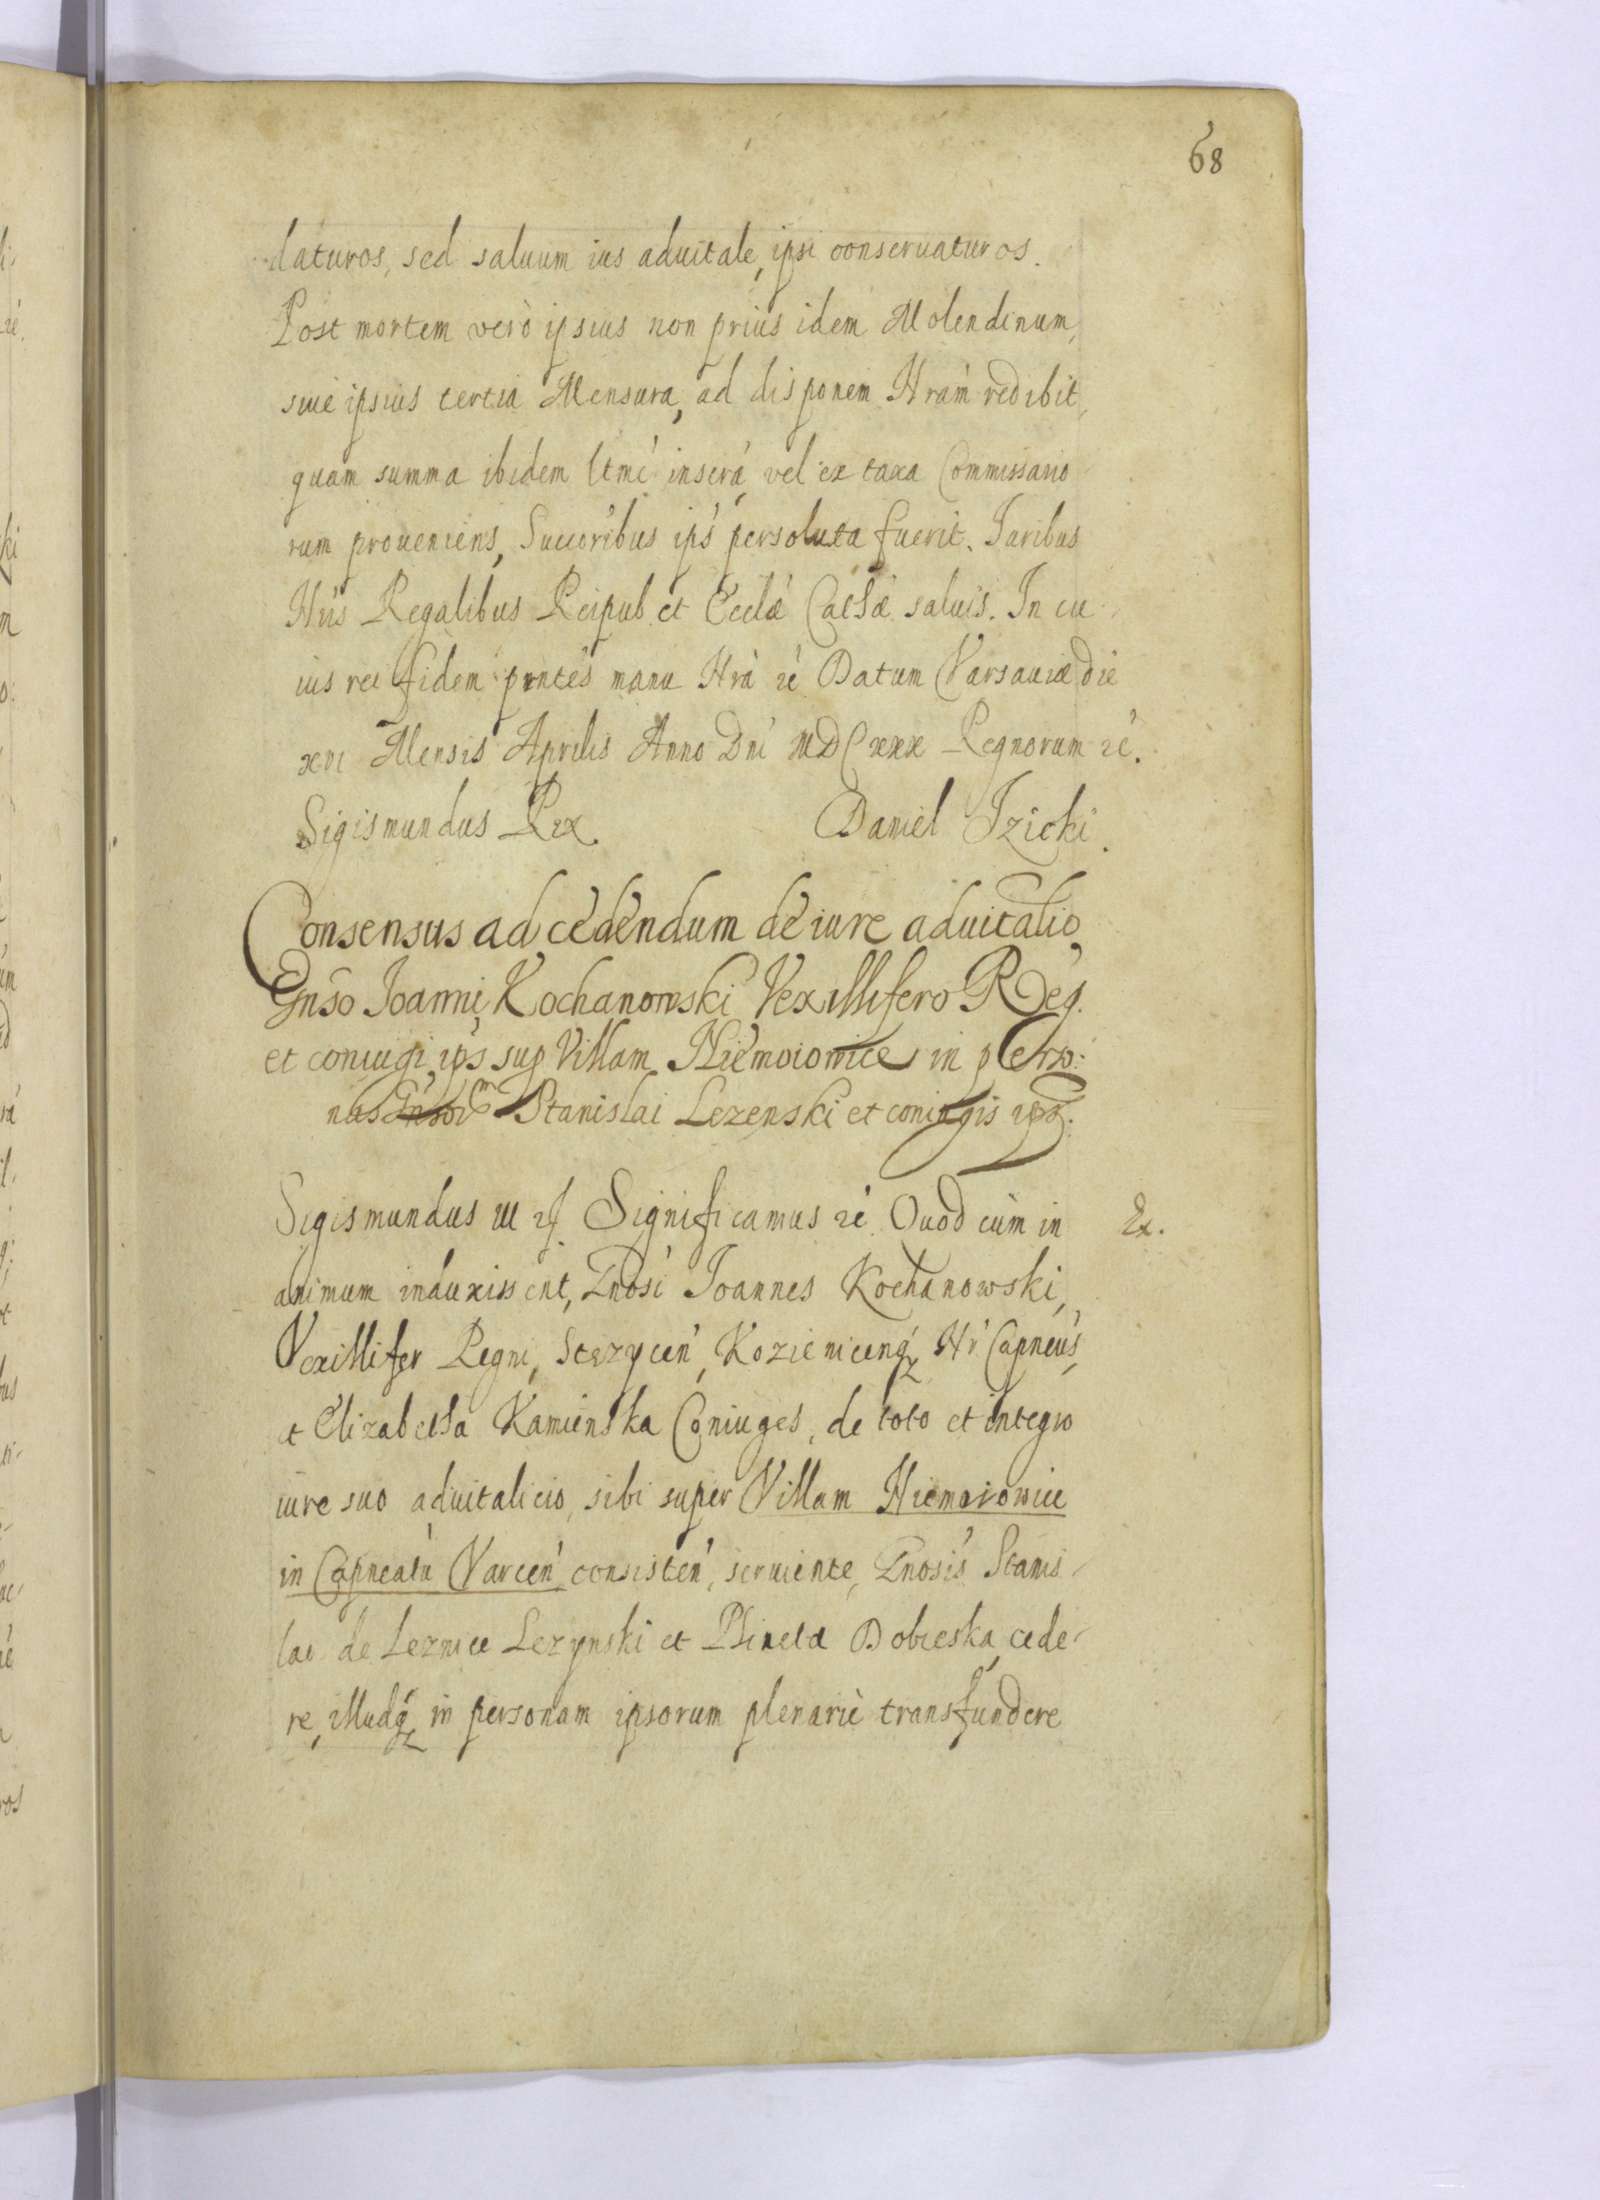 68
daturos, sed saluum ius aduitale, ipsi conseruaturos.
Post mortem verò ipsius non prius idem Molendinum,
siue ipsius tertia Mensura, ad disponem Nram redibit,
quam summa ibidem ltmé inserá, vel ex taxa Commissario
rum proueniens, Succoribus ips persoluta fuerit. Iuribus
Nris Regalibus Reipub et Ecclæ Cathæ saluis. In cu-
ius rei fidem pntes manu Nrà zé Datum Varsauiæ die
xvi Mensis Aprilis Anno Dni MDCxxx Regnorum zé.
Sigismundus Rex. Daniel Izicki.
Consensus ad cedendum de iure aduitalio,
Gnso Joanni Kochanowski Vexillifero Reg.
et coniugi ips sup Villam Niemoiowice in perso:
nas Gnsorm Stanislai Lezenski et coniugis ips.
Sigismundus III Significamus zé Quod cùm in
Ex.
animum induxissent, Gnosi Joannes Kochanowski,
Vexillifer Regni, Stezycen, Kozienicenq Nr Capneus,
et Elizabetha Kamienska Coniuges, de toto et integro
iure suo aduitalicio, sibi super Villam Niemoiowice
in Capneatu Varcen consisten, seruiente, Gnosis Stanis-
lao de Leznice Lezynski et Dobieska, cede-
re, illudq in personam ipsorum plenariè transfundere